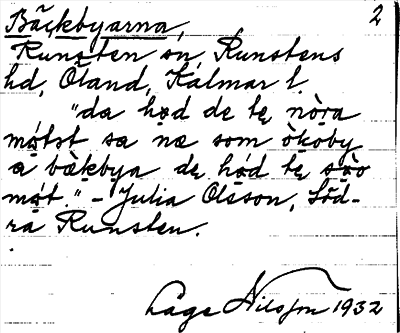 Bäckbyarna, 2
Runsten sn, Runstens
hd, Öland, Kalmar l.
"da hød de tę nòra
møtst sa næ som òkoby
a bækbya dę hød tę sào
møt." – Julia Olsson, Söd-
ra Runsten.
Åage Nilsson 1932